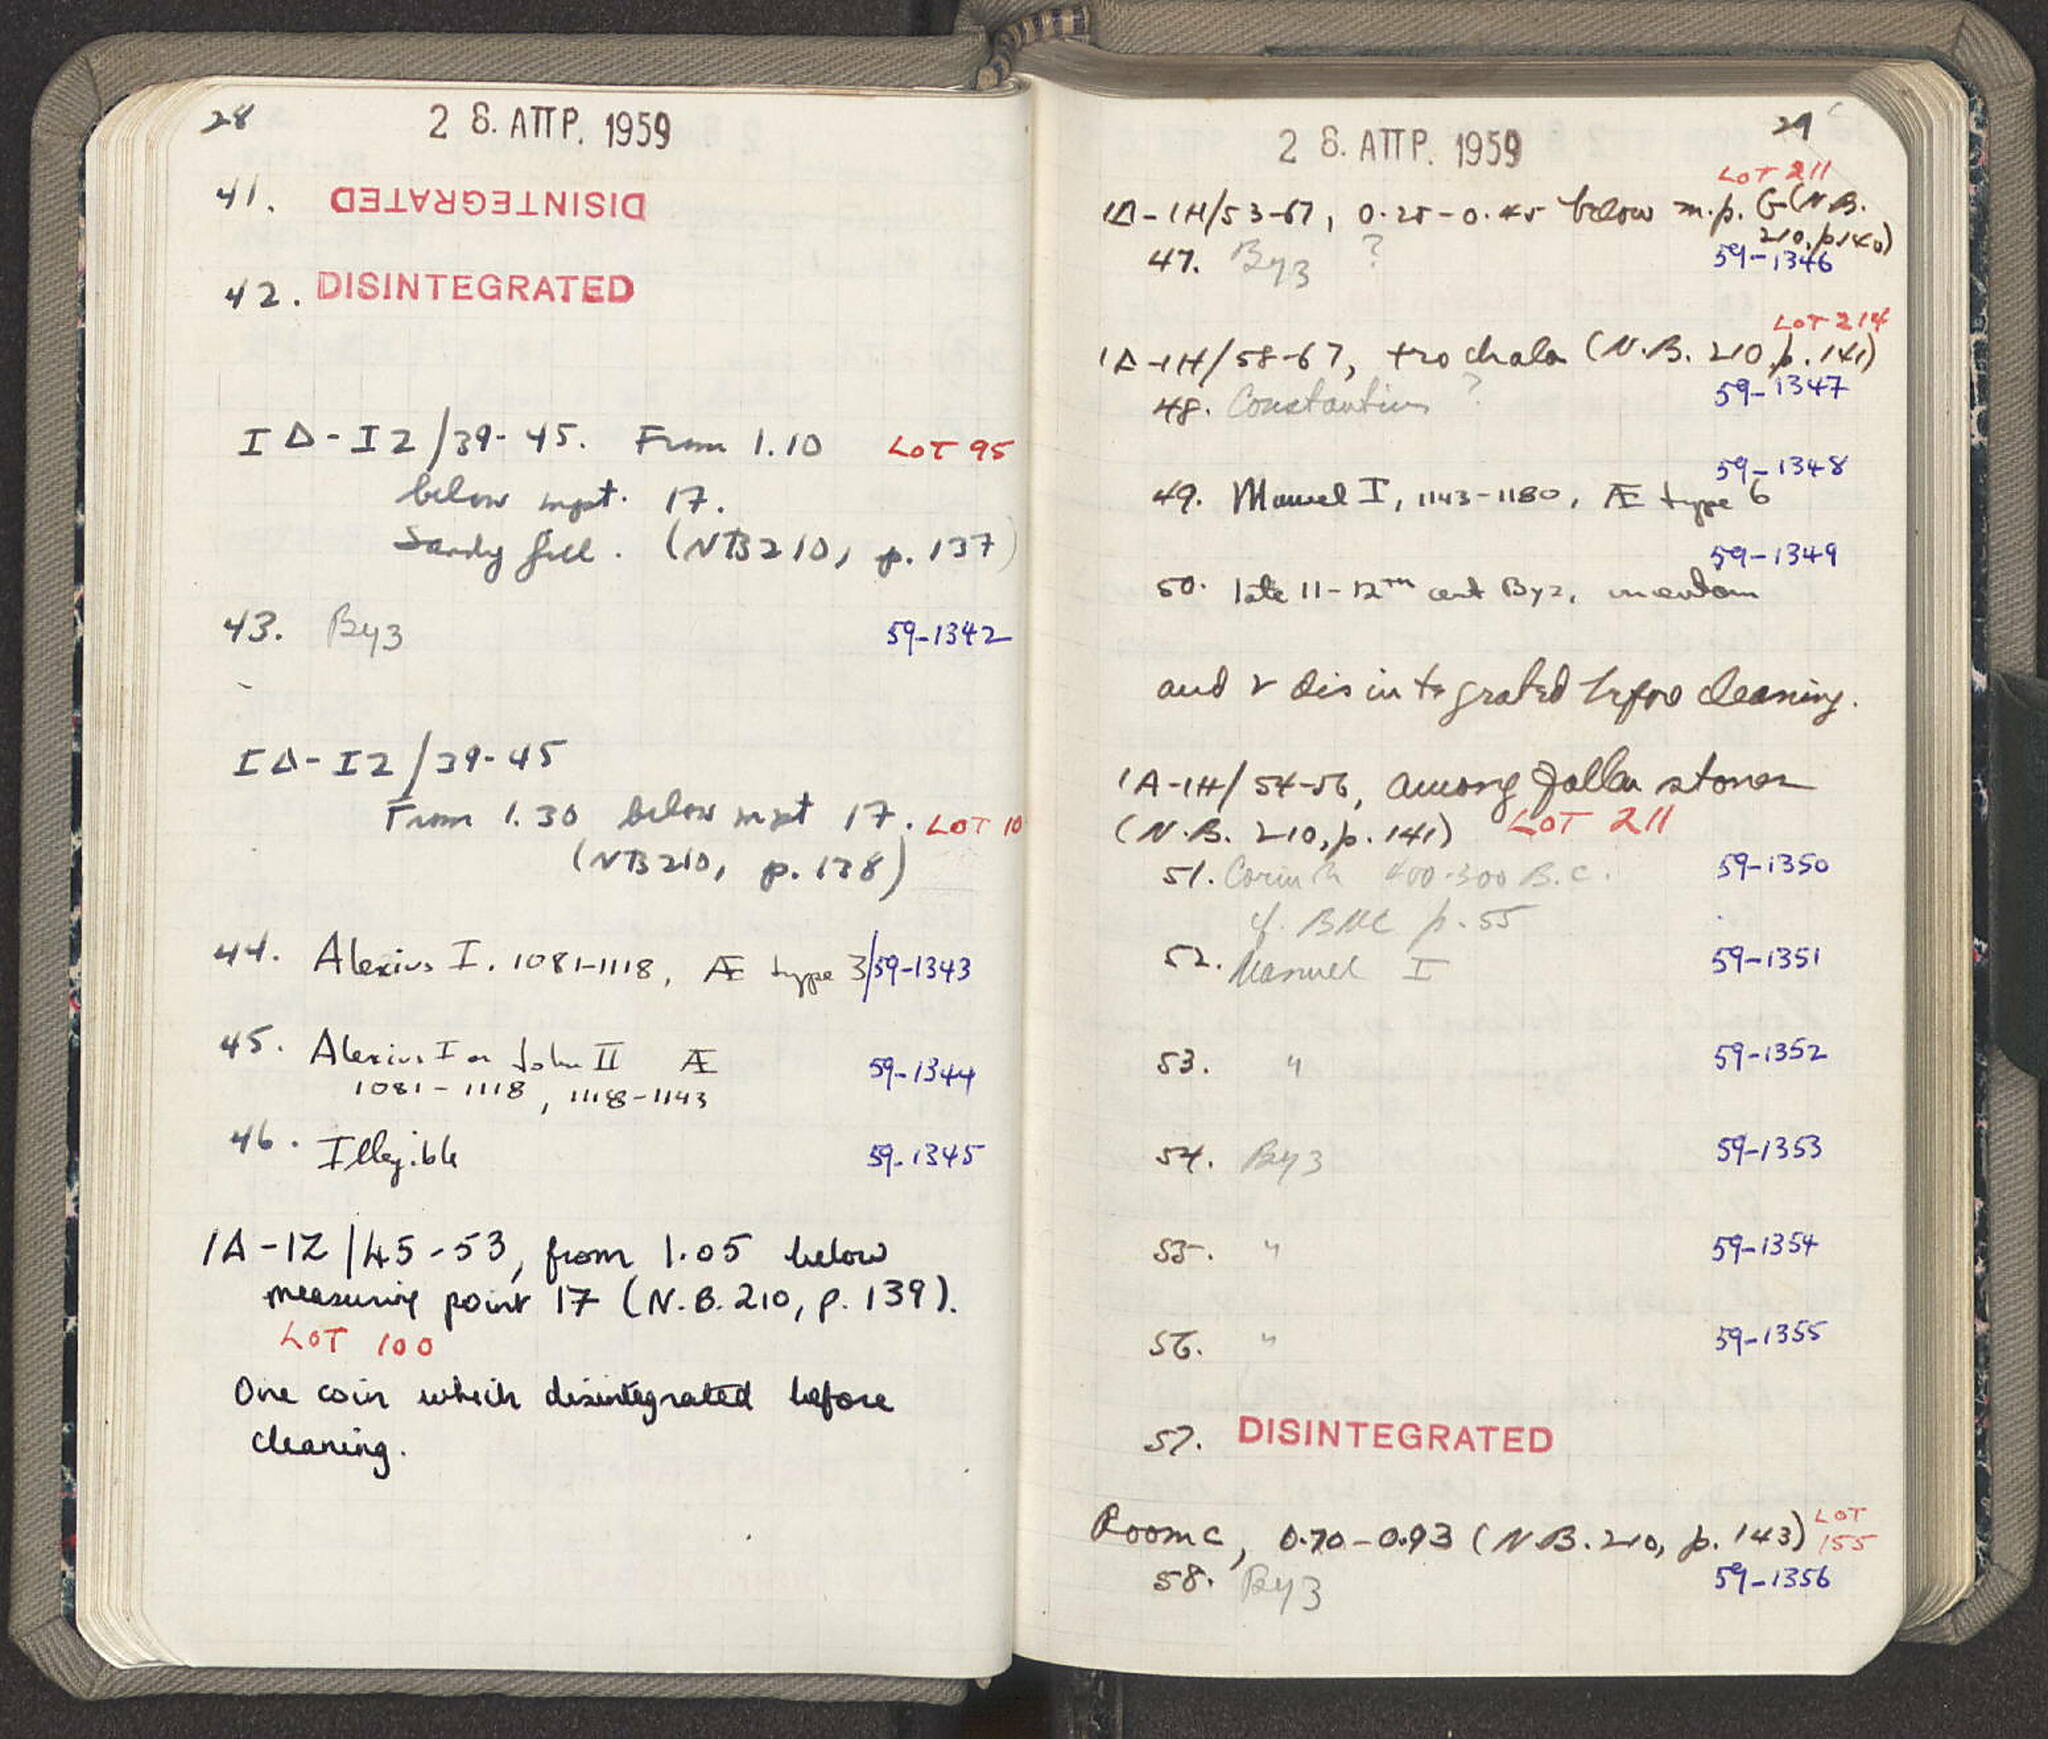 28
2 8. ΑΠΡ. 1959
41. DISINTEGRATED
42. DISINTEGRATED
IΔ-IZ/39-45. From 1.10 LOT 95
below mpt. 17.
Sandy fill. (NB210, p. 137)
43. Byz 59-1342
IΔ-IZ/39-45
From 1.30 below mpt 17. LOT 10
(NB210, p. 138)
44. Alexius I. 1081-1118, Æ type 3/59-1343
45. Alexius I or John II Æ 59-1344
1081-1118, 1118-1143
46. Illegible 59-1345
IΔ-IZ/45-53, from 1.05 below
measuring point 17 (N.B. 210, p. 139).
LOT 100
One coin which disintegrated before
cleaning.
29
2 8. ΑΠΡ. 1959
LOT 211
IΔ-IH/53-67, 0.25-0.45 below m.p. G (N.B.
210, p.140)
47. Byz ? 59-1346
LOT 214
IΔ-IH/58-67, trochala (N.B. 210, p. 141)
48. Constantius ? 59-1347
59-1348
49. Manuel I, 1143-1180, Æ type 6
59-1349
50. late 11-12th cent Byz,
and 2 disintegrated before cleaning.
IΔ-IH/54-56, among fallen stones
(N.B. 210, p. 141) LOT 211
51. Corinth 400-300 B.C. 59-1350
cf. BMC p. 55
52. Manuel I 59-1351
53. " 59-1352
54. Byz 59-1353
55. " 59-1354
56. " 59-1355
57. DISINTEGRATED
Room C, 0.70-0.93 (N.B. 210, p. 143) LOT
155
58. Byz 59-1356